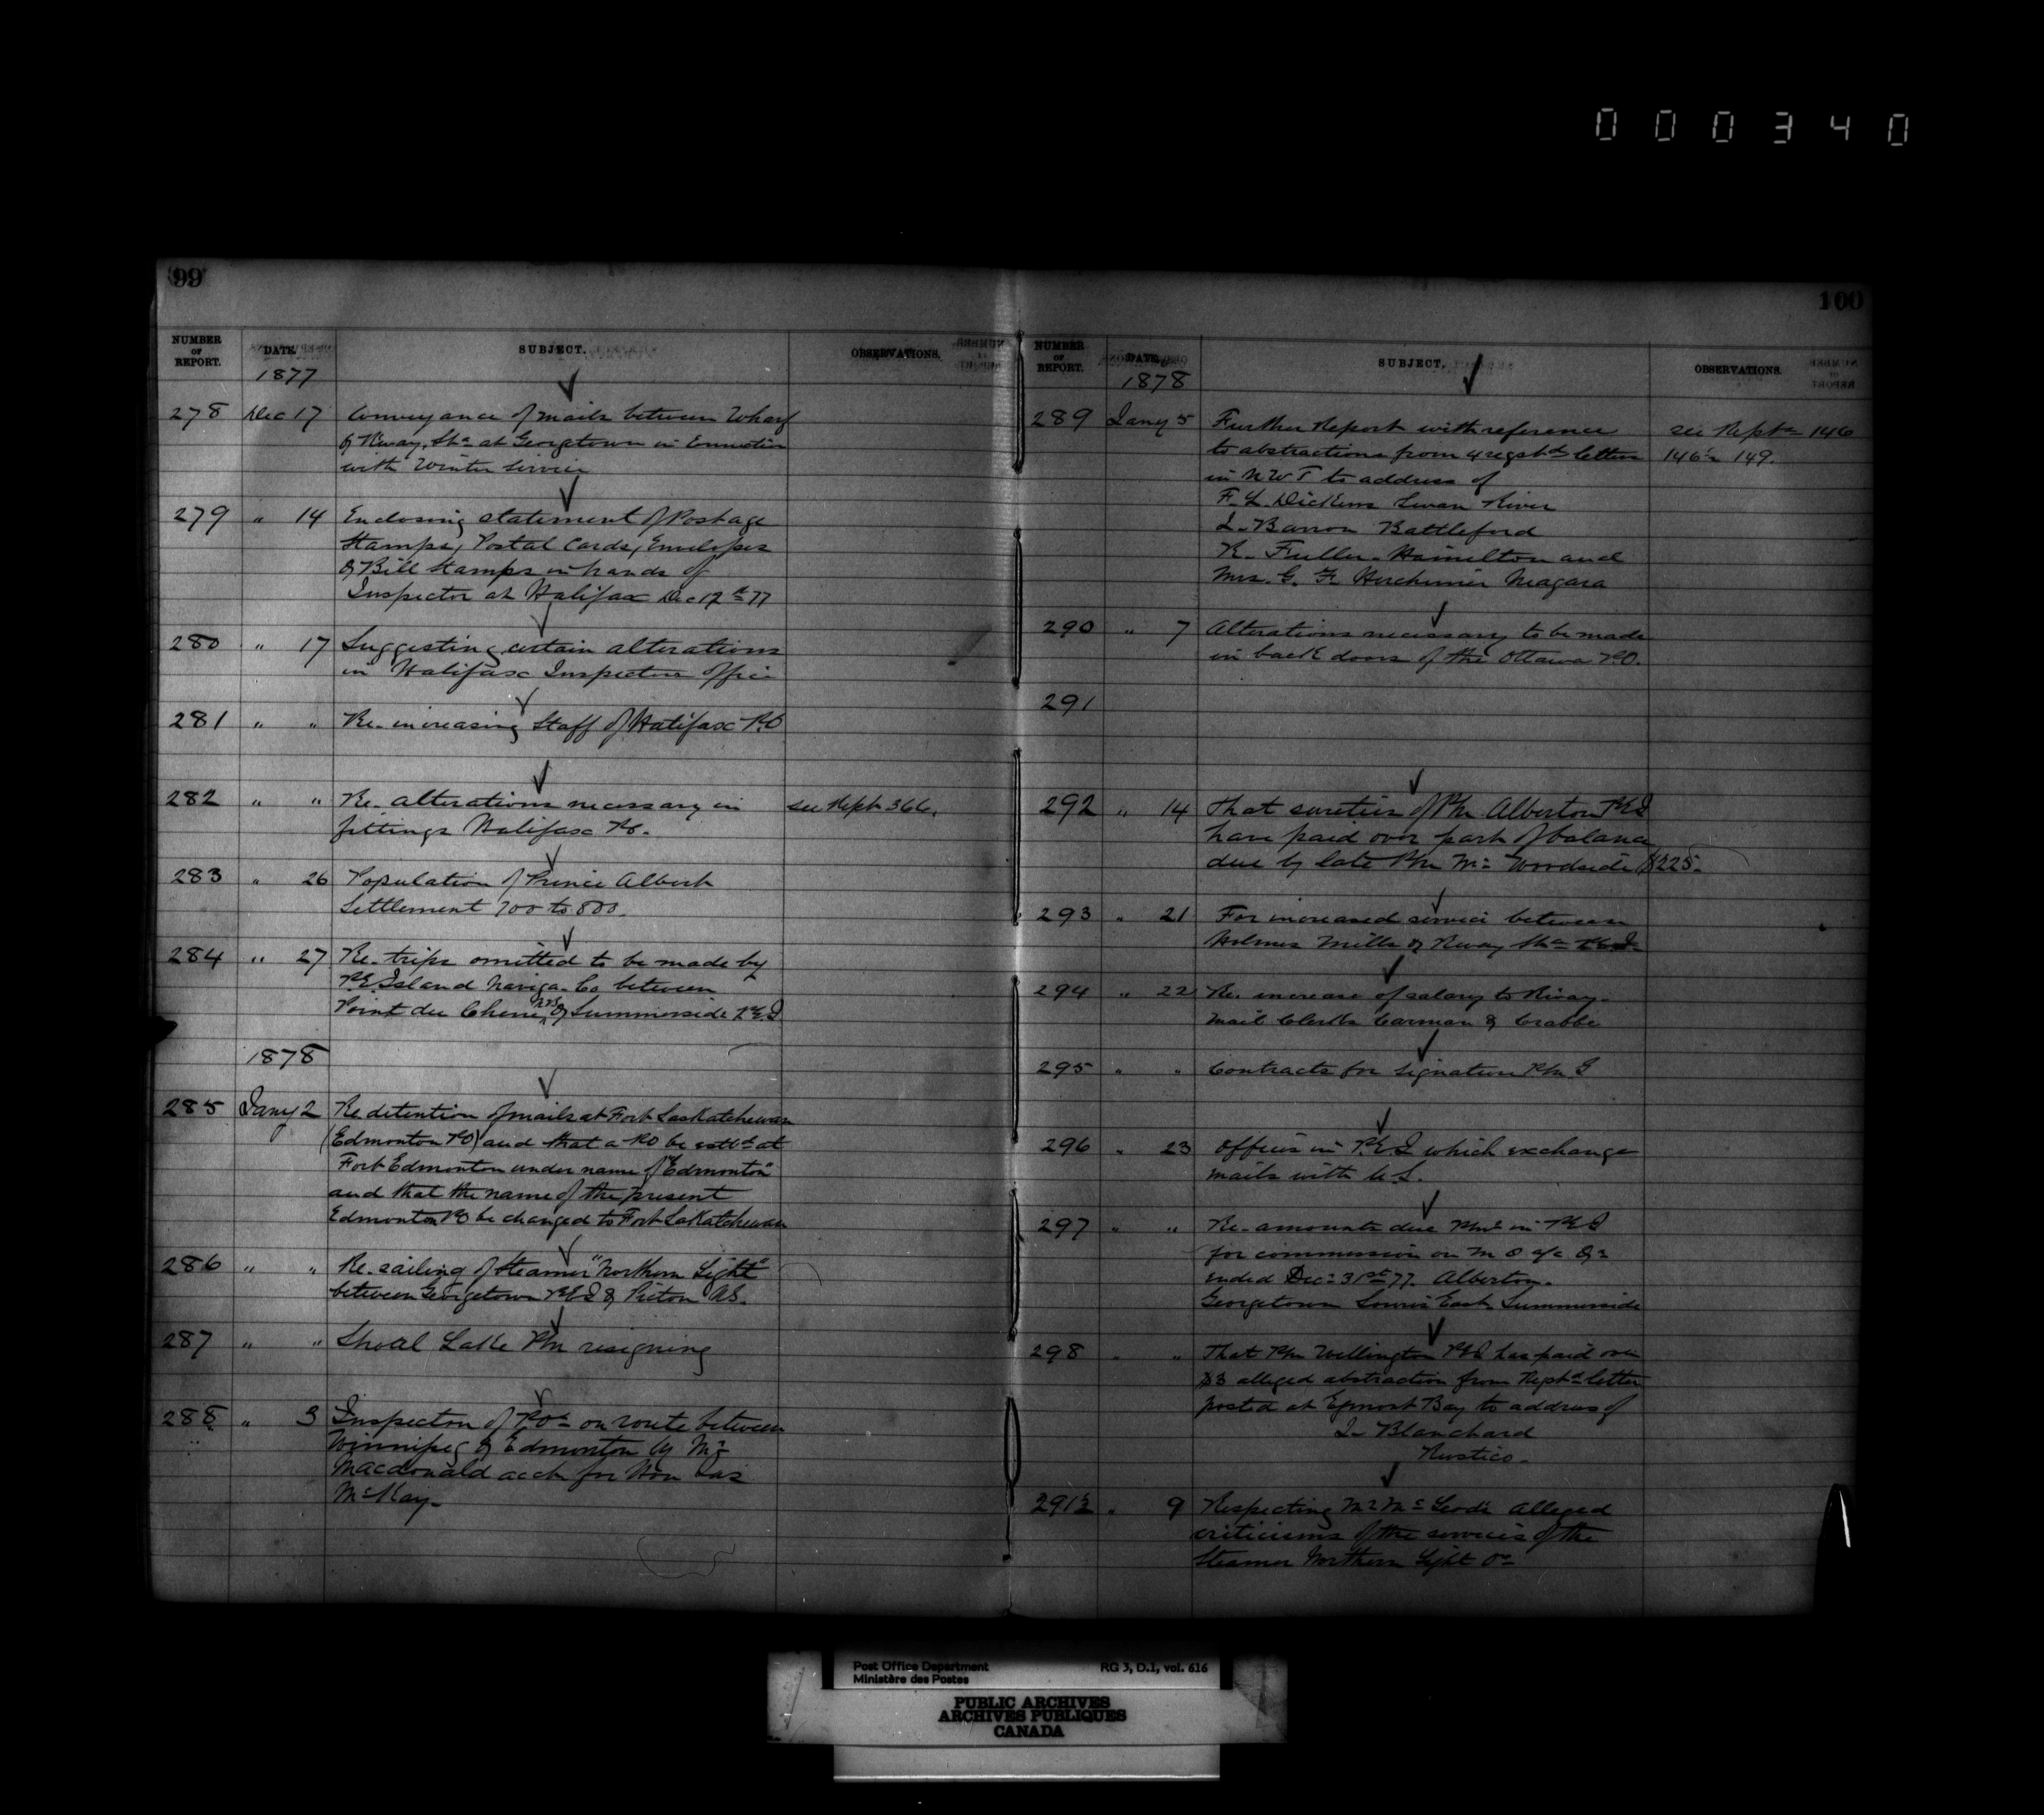 000340
99
NUMBER OF REPORT. DATE. SUBJECT. OBSERVATIONS.
1877
278 Dec 17 Conveyance of mails between Wharf
& Rway. Stn at Georgetown in Connection
with Winter Service
279 " 14 Enclosing statement of Postage
Stamps, Postal Cards, Envelopes
& Bill Stamps in hands of
Inspector at Halifax Dec 12th 77
280 " 17 Suggesting certain alterations
in Halifax Inspectors Office
281 " " Re. increasing Staff of Halifax P.O
282 " " Re. alterations necessary in see Rept 366.
fittings Halifax PO.
283 " 26 Population of Prince Albert
Settlement 700 to 800.
284 " 27 Re. trips omitted to be made by
P.E. Island Naviga. Co between
Point du Chene NB & Summerside P.E.I
1878
285 Jany 2 Re detention of mails at Fort Saskatchewan
(Edmonton PO) and that a PO be estbd at
Fort Edmonton under name of "Edmonton"
and that the name of the present
Edmonton PO be changed to Fort Saskatchewan
286 " " Re. sailing of Steamer "Northern Light"
between Georgetown P.E.I & Pictou N.S.
287 " " Shoal Lake Pm resigning
288 " 3 Inspection of P.Os on route between
Winnipeg & Edmonton by Mr
Macdonald acct for Hon Jas
McKay.
100
NUMBER OF REPORT. DATE. SUBJECT. OBSERVATIONS.
1878
289 Jany 5 Further Report with reference see Repts 146
to abstractions from 4 regstd letters 146½ 149.
in N W T to address of
F. L. Dickens Swan River
J. Barron Battleford
R. Fuller. Hamilton and
Mrs. G. F. Herchimer Niagara
290 " 7 Alterations necessary to be made
in back doors of the Ottawa P.O.
291
292 " 14 That sureties of Pm Alberton P.E.I
have paid over part of balance
due by late Pm Mr Woodside $225.
293 " 21 For increased service between
Holmes Mills & Rway Stn P.E.I.
294 " 22 Re. increase of salary to Rway.
Mail Clerks Carman & Crabbe
295 " " Contracts for signature Pm G
296 " 23 Offices in P.E.I which exchange
mails with U.S.
297 " " Re. amounts due Pms in P.E.I
for commission on M O a/c Qr
ended Decr 31st 77. Alberton.
Georgetown Souris East Summerside
298 " " That Pm Wellington P.E.I has paid over
$3 alleged abstraction from Regstd letter
posted at Egmont Bay to address of
J. Blanchard
Rustico.
291½ " 9 Respecting Mr McLeods alleged
criticisms of the services of the
Steamer Northern Light
Post Office Department RG 3, D.1, vol. 616
Ministère des Postes
PUBLIC ARCHIVES
ARCHIVES PUBLIQUES
CANADA